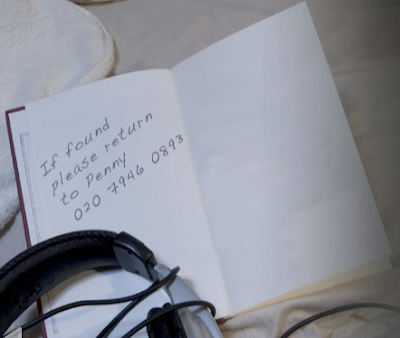 If found
please return
to Penny
020 7946 0893